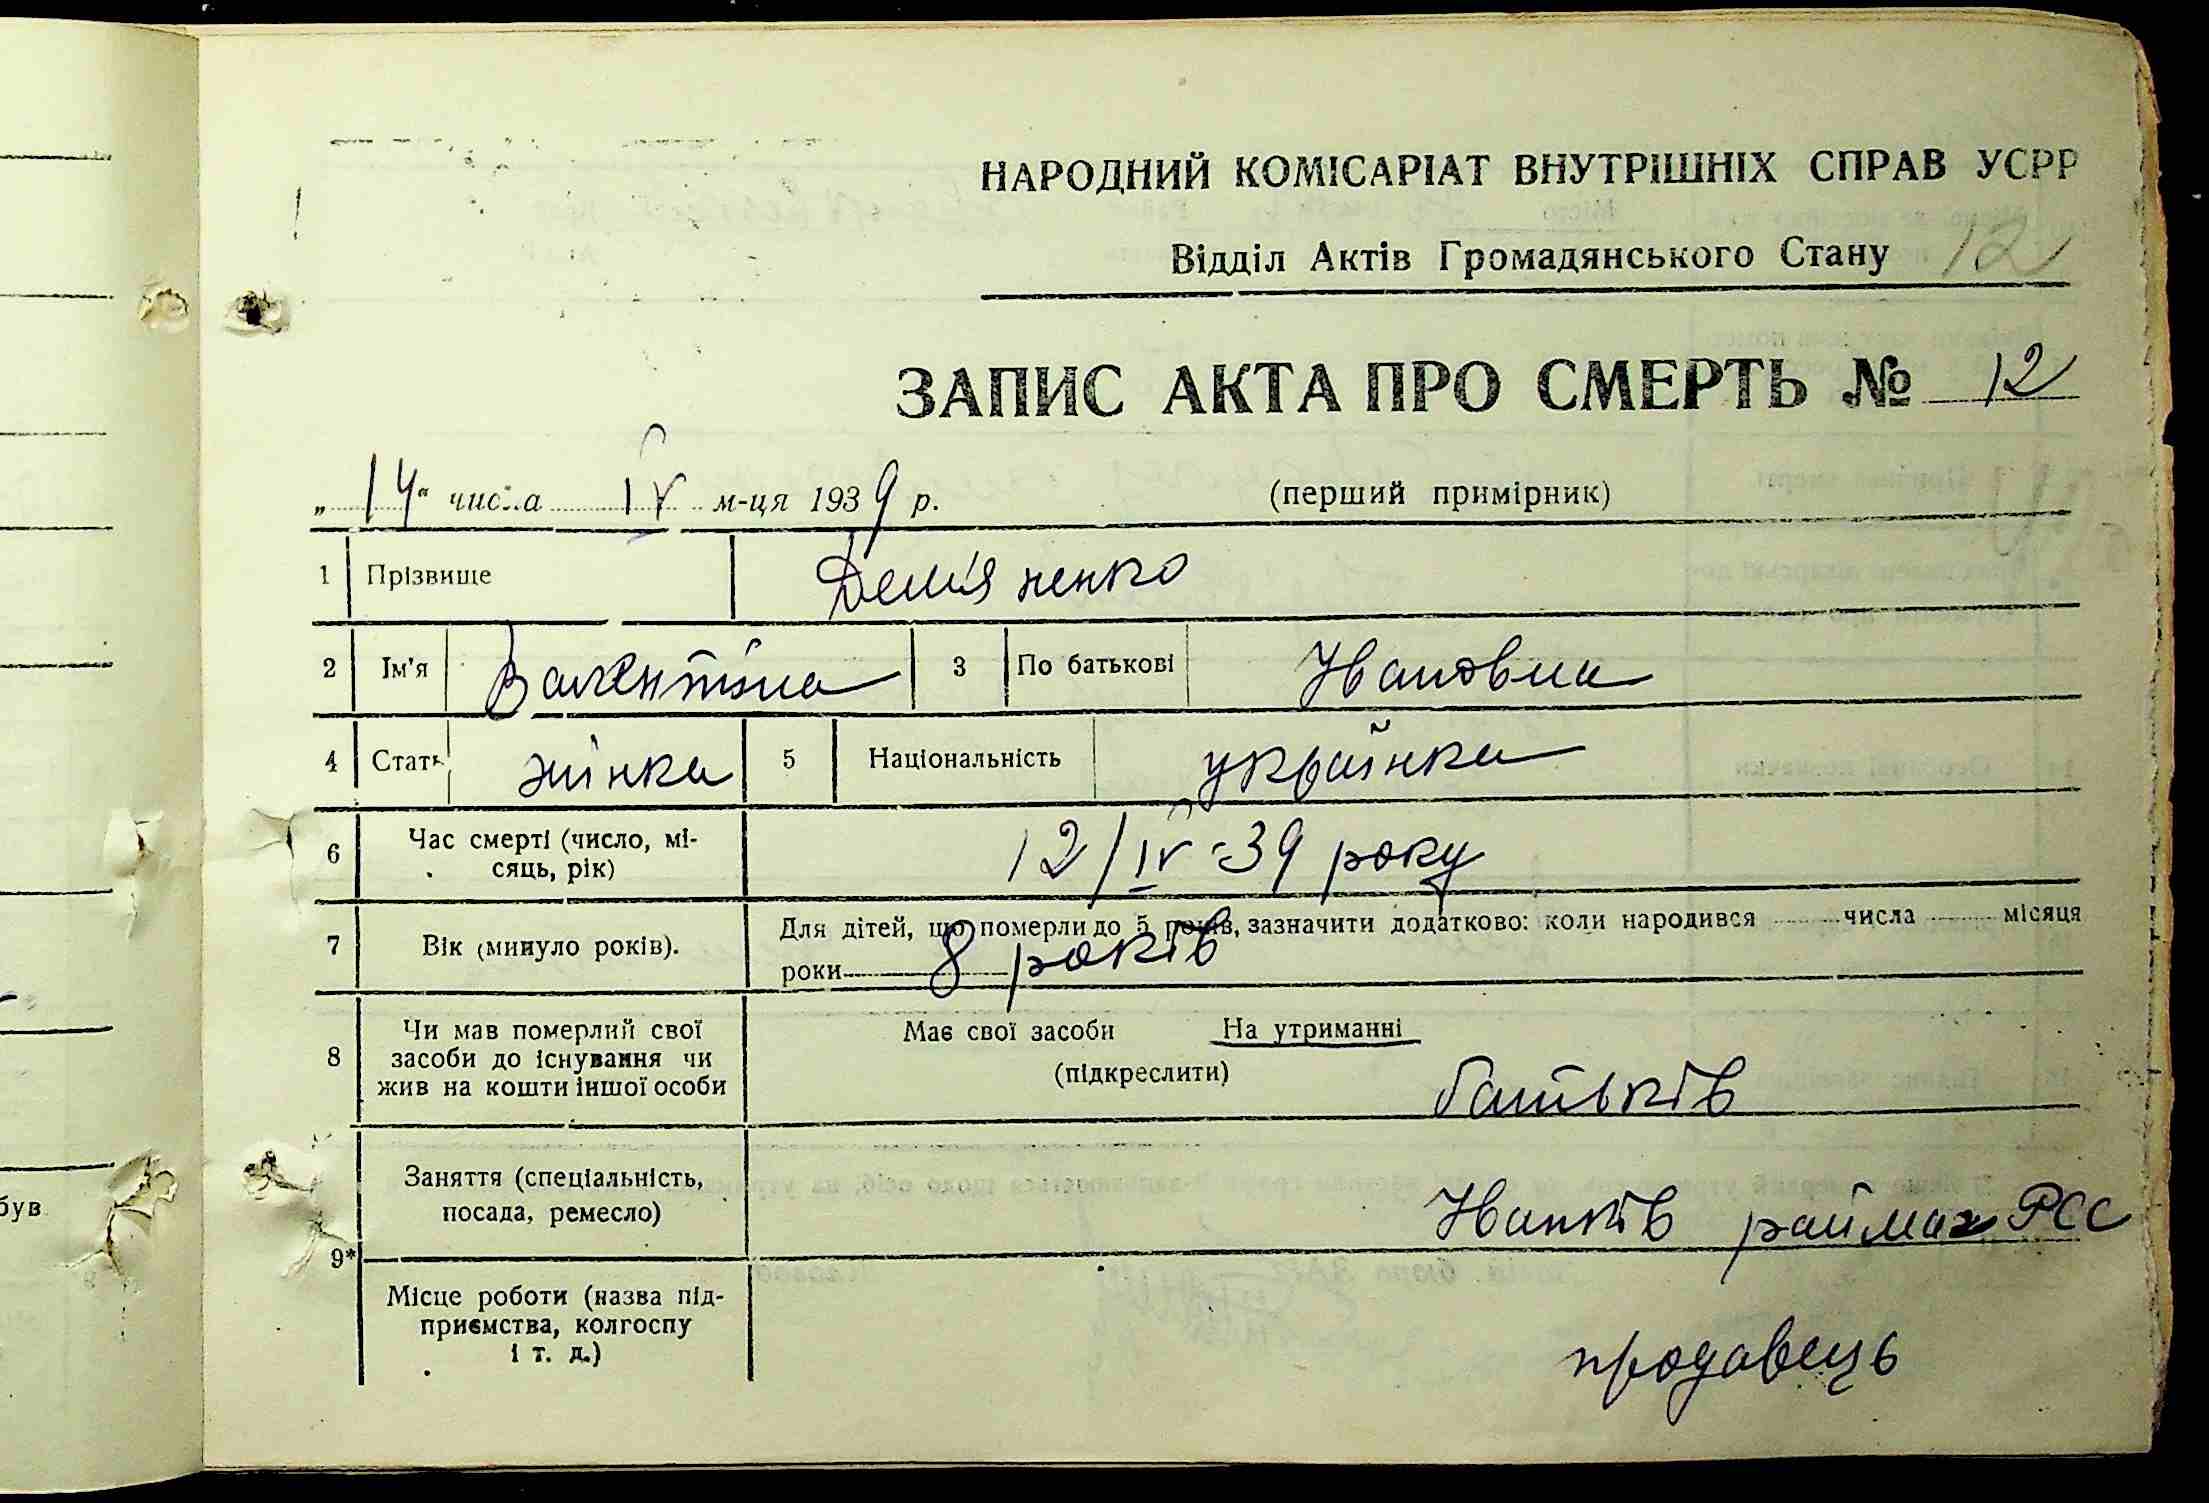 НАРОДНИЙ КОМІСАРІАТ ВНУТРІШНІХ СПРАВ УСРР
Відділ Актів Громадянського Стану 12
ЗАПИС АКТА ПРО СМЕРТЬ № 12
„14“ числа IV м-ця 1939 р. (перший примірник)
1 Прізвище Дем'яненко
2 Ім'я Валентіна 3 По батькові Івановна
4 Стать жінка 5 Національність українка
6 Час смерті (число, мі-
сяць, рік) 12/IV-39 року
7 Вік (минуло років). Для дітей, що померли до 5 років, зазначити додатково: коли народився числа місяця
роки 8 років
8 Чи мав померлий свої
засоби до існування чи
жив на кошти іншої особи
Має свої засоби На утриманні
(підкреслити)
батьків
9* Заняття (спеціальність,
посада, ремесло)
Іванків раймаг РСС
Місце роботи (назва під-
приємства, колгоспу
і т. д.)
продавець
був